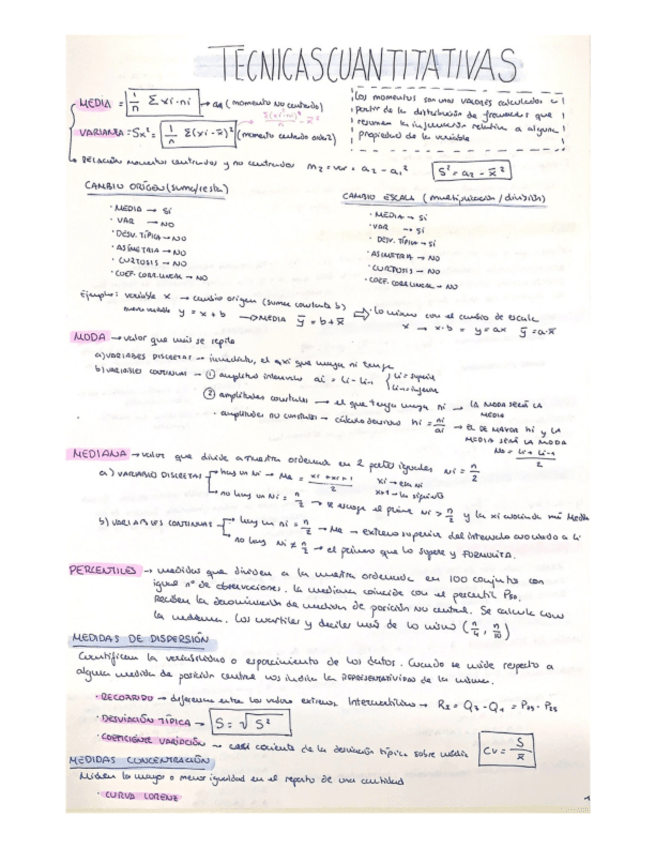 TÉCNICAS CUANTITATIVAS
MEDIA = 1/n Σ xi·ni → a1 (momento no centrado)
Σ(xi·ni)²/n - x̄²
VARIANZA = Sx² = 1/n Σ(xi-x̄)² (momento centrado orden 2)
Los momentos son unos valores calculados a
partir de la distribución de frecuencias que
resumen la información relativa a alguna
propiedad de la variable
Relación momentos centrados y no centrados m2 = var = a2 - a1² S² = a2 - x̄²
CAMBIO ORIGEN (suma/resta)
· MEDIA → SÍ
· VAR → NO
· DESV. TÍPICA → NO
· ASIMETRIA → NO
· CURTOSIS → NO
· COEF. CORR. LINEAL → NO
CAMBIO ESCALA (multiplicación / división)
· MEDIA → SÍ
· VAR → SÍ
· DESV. TÍPICA → SÍ
· ASIMETRIA → NO
· CURTOSIS → NO
· COEF. CORR. LINEAL → NO
Ejemplo: variable x → cambio origen (sumar constante b)
nueva variable y = x + b → MEDIA ȳ = b + x̄
Lo mismo con el cambio de escala
x → x·b = y = ax ȳ = a·x̄
MODA → valor que más se repite
a) VARIABLES DISCRETAS → inmediata, el xi que mayor ni tenga
b) VARIABLES CONTINUAS → ① amplitud intervalo ai = Li - Li-1 { Li = superior
Li-1 = inferior
② amplitudes constantes → el que tenga mayor ni → LA MODA SERÁ LA
MEDIA
· amplitudes no constantes → cálculo hi = ni/ai → EL DE MAYOR hi Y LA
MEDIA SERÁ LA MODA
Mo = Li + Li-1 / 2
MEDIANA → valor que divide a muestra ordenada en 2 partes iguales Ni = n/2
a) VARIABLES DISCRETAS → hay un Ni → Me = xi + xi+1 / 2 xi → esa Ni
xi+1 → la siguiente
no hay un Ni = n/2 → se escoge el primer Ni > n/2 y la xi asociada será Media
b) VARIABLES CONTINUAS → hay un Ni = n/2 → Me → extremo superior del intervalo asociado a Li
no hay Ni ≠ n/2 → el primero que lo supere y FORMULITA.
PERCENTILES → medidas que dividen a la muestra ordenada en 100 conjuntos con
igual nº de observaciones. La mediana coincide con el percentil P50.
Reciben la denominación de medidas de posición no central. Se calcula como
la mediana. Los cuartiles y deciles más de lo mismo (n/4, n/10)
MEDIDAS DE DISPERSIÓN
Cuantifican la variabilidad o esparcimiento de los datos. Cuando se mide respecto a
alguna medida de posición central nos indica la REPRESENTATIVIDAD de la misma.
· RECORRIDO → diferencia entre los valores extremos Intercuartílico → RI = Q3 - Q1 = P75 - P25
· DESVIACIÓN TÍPICA → S = √S²
· COEFICIENTE VARIACIÓN → cociente de la desviación típica sobre media CV = S/x̄
MEDIDAS CONCENTRACIÓN
Miden la mayor o menor igualdad en el reparto de una cantidad
· CURVA LORENZ